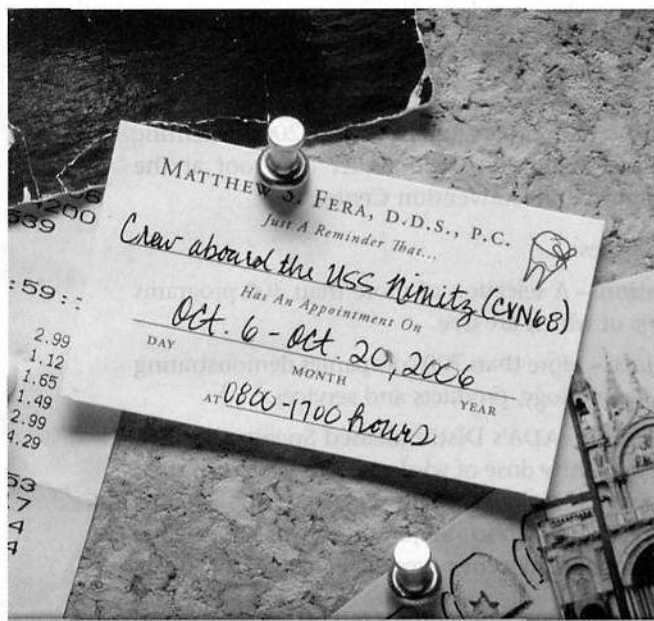 MATTHEW S. FERA, D.D.S., P.C.
Just A Reminder That...
Crew aboard the USS Nimitz (CVN68)
Has An Appointment On
Oct. 6 - Oct. 20, 2006
DAY MONTH YEAR
AT 0800-1700 hours
1200
539
:59::
2.99
1.12
1.65
1.49
2.99
4.29
53
7
4
4